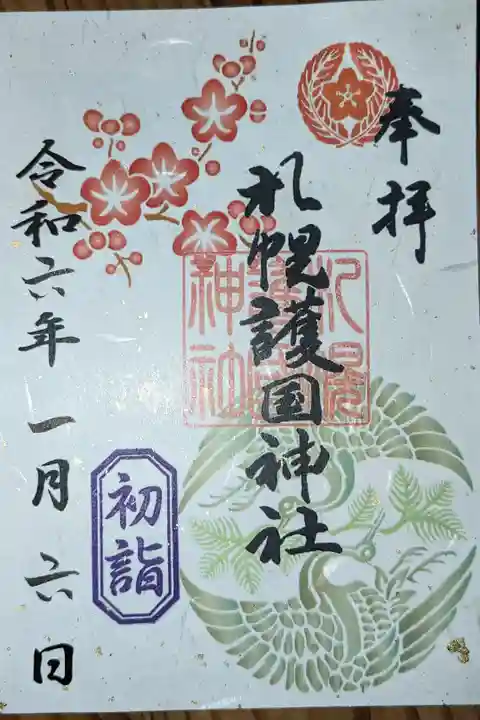 奉拝
札幌護国神社
札幌護国神社
初詣
令和六年一月六日